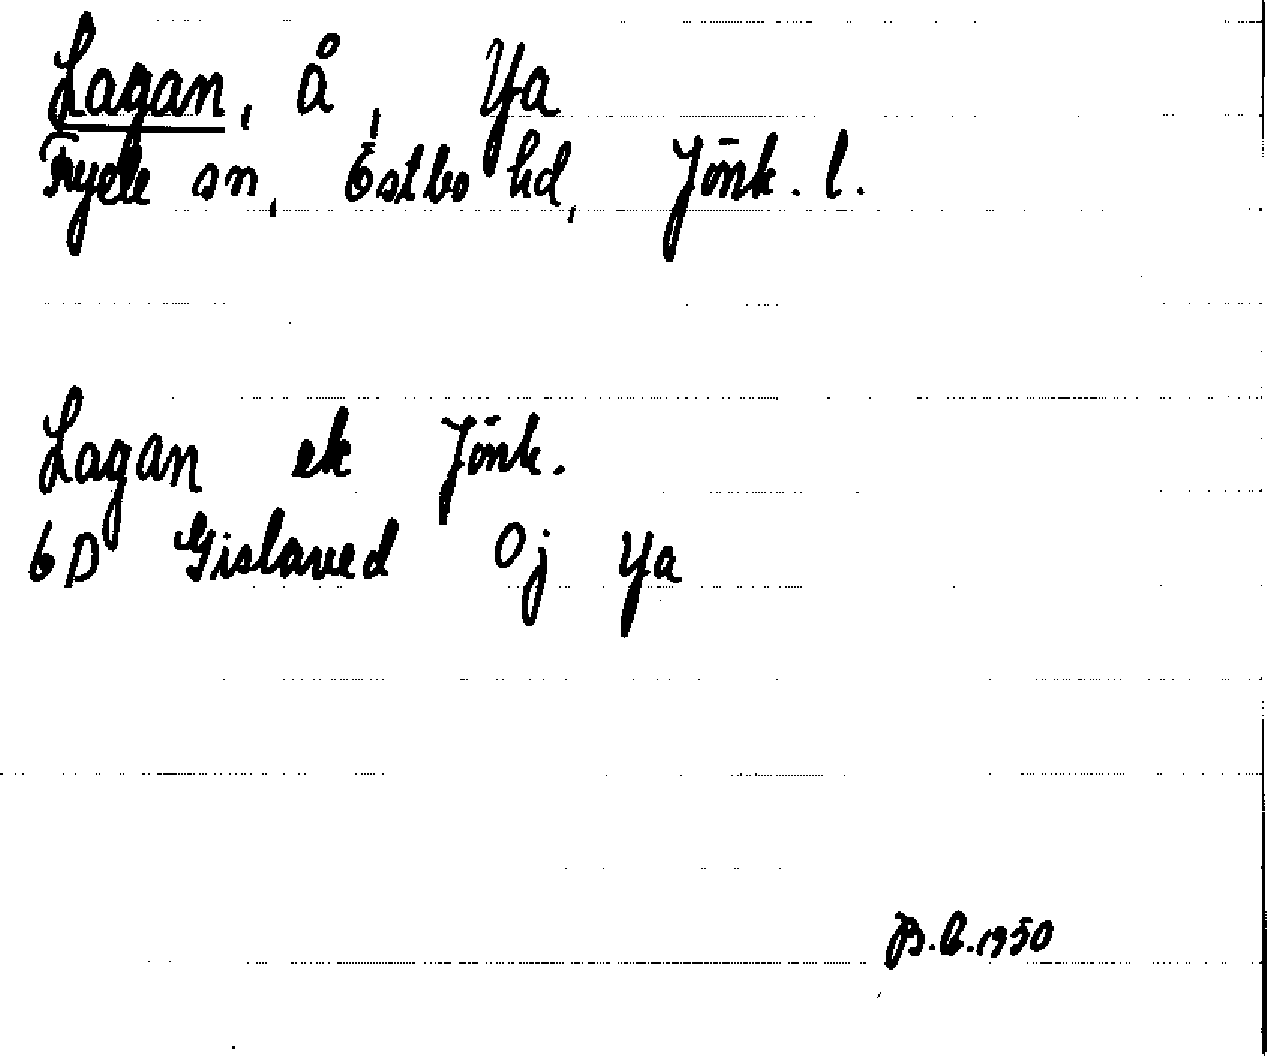 Lagan, å, Ya
Fryele sn, Östbo hd, Jönk. l.
Lagan ek Jönk.
6D Gislaved Oj Ya
B.L. 1950